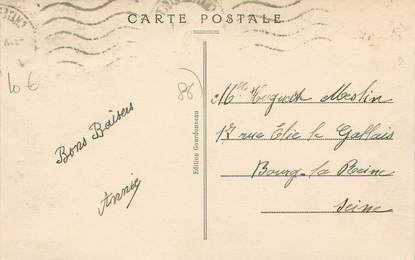 CARTE POSTALE
10 €
86
Bons Baisers
Annie
Edition Gourdonneau
Mlle Meslin
17 rue Elie le Gallais
Bourg-la Reine
Seine